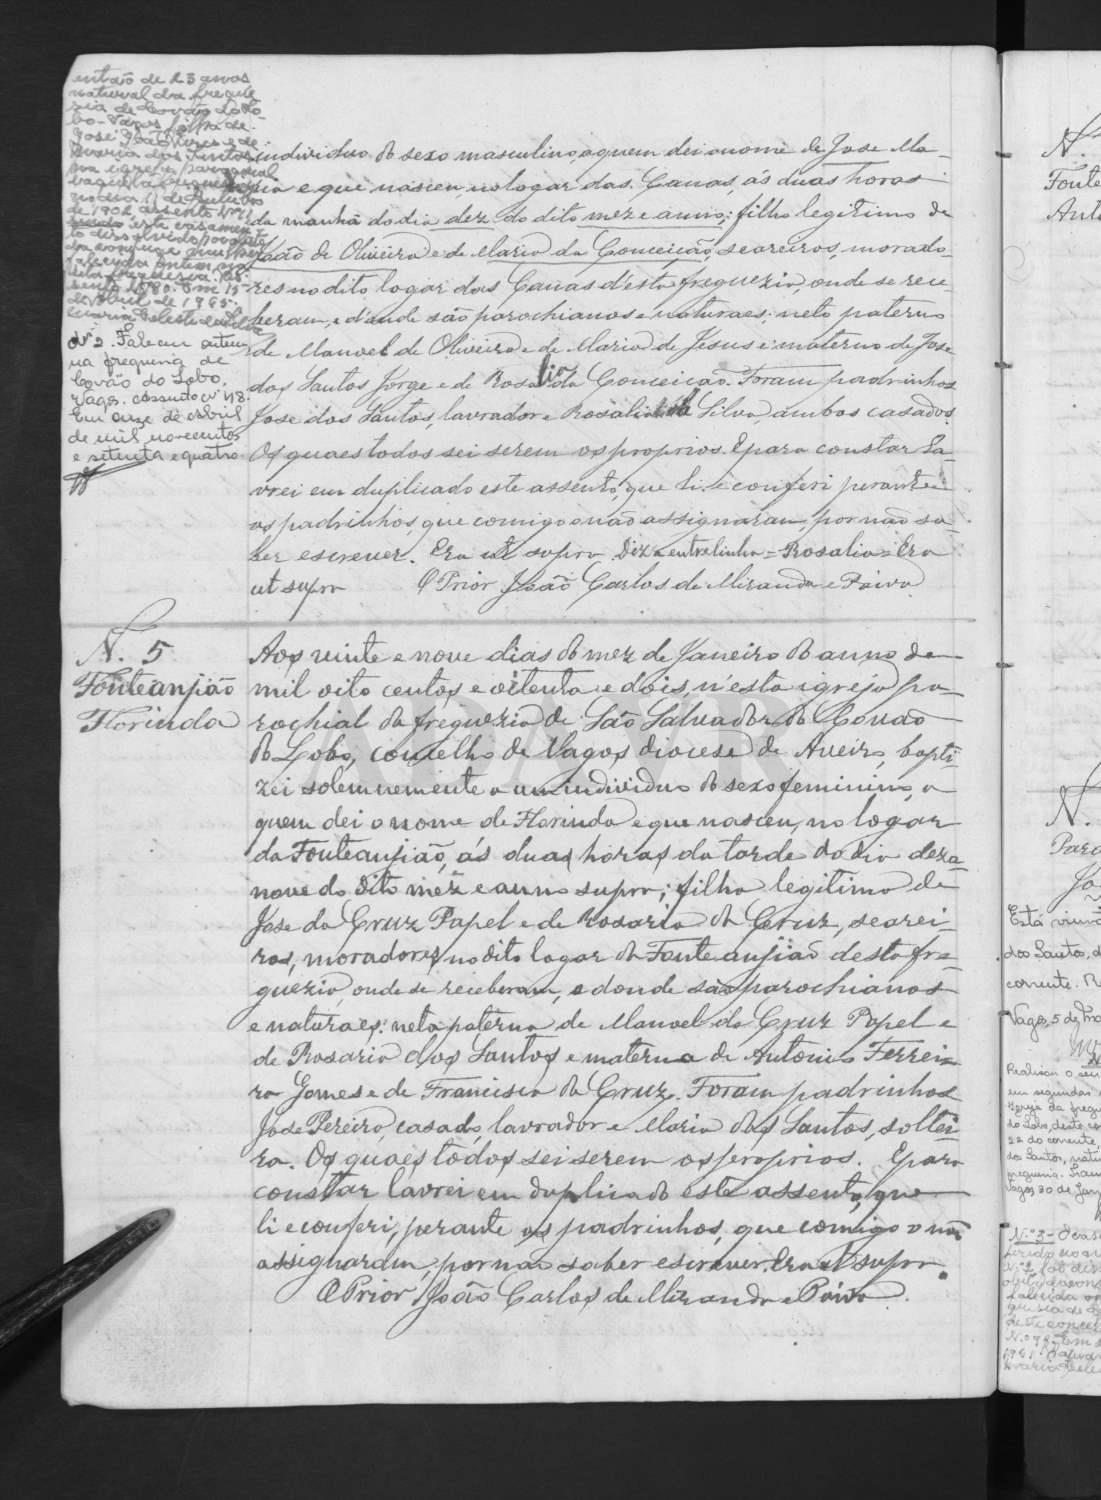 então de 23 anos
natural da fregue
sia de Covão do Lo
bo-Vagos filha de
José João Neres e de
Maria dos Santos
na egreja parroquial
no dia 11 de
de 1902 assento Nº 11
este casamen
to dissolvido por obito
da conjuge
falecida ontem na
dita freguesia.
sento Nº 80. Em 15
de Abril de 1965.
Maria Celeste
Nº 2. Faleceu ontem
na freguesia de
Covão do Lobo,
Vagos. assento nº 48.
Em onze de abril
de mil novecentos
e setenta e quatro.
individuo do sexo masculino, a quem dei o nome de Jose Ma-
ria e que nasceu, no logar das Canas, ás duas horas
da manhã do dia dez do dito mez e anno; filho legitimo de
João de Oliveira e de Maria da Conceição, seareiros, morado-
res no dito logar das Canas d'esta freguezia, onde se rece-
beram, e d'onde são parochianos e naturaes; neto paterno
de Manoel de Oliveira e de Maria de Jesus e materno de Jose
dos Santos Jorge e de Rosalia da Conceição. Foram padrinhos
Jose dos Santos, lavrador e Rosalia da Silva, ambos casados.
Os quaes todos sei serem os proprios. E para constar la-
vrei em duplicado este assento, que li e conferi perante
os padrinhos, que comigo o não assignaram, por não sa-
ber escrever. Era ut supra. Diz a entrelinha = Rosalia = Era
ut supra O Prior João Carlos de Miranda e Paiva
N. 5
Fonteanjião
Florinda
Aos vinte e nove dias do mez de Janeiro do anno de
mil oito centos e oitenta e dois, n'esta igreja pa-
rochial da freguezia de São Salvador do Covão
do Lobo, concelho de Vagos diocese de Aveiro, bapti-
zei solemnemente a um individuo do sexo feminino, a
quem dei o nome de Florinda e que nasceu, no logar
da Fonteanjião, ás duas horas da tarde do dia deza-
nove do dito mez e anno supra; filha legitima de
Jose da Cruz Papel e de Rosaria da Cruz, searei-
ros, moradores no dito logar da Fonteanjião desta fre-
guezia, onde se receberam, e donde são parochianos
e naturaes: neta paterna de Manoel da Cruz Papel e
de Rosaria dos Santos e materna de Antonio Ferrei-
ra Gomes e de Francisca da Cruz. Foram padrinhos
Jose Pereira, casado, lavrador e Maria dos Santos, soltei-
ra. Os quaes todos sei serem os proprios. E para
constar lavrei em duplicado este assento, que
li e conferi, perante os padrinhos, que comigo o não
assignaram, por não saber escrever. Era ut supra.
O Prior João Carlos de Miranda e Paiva.